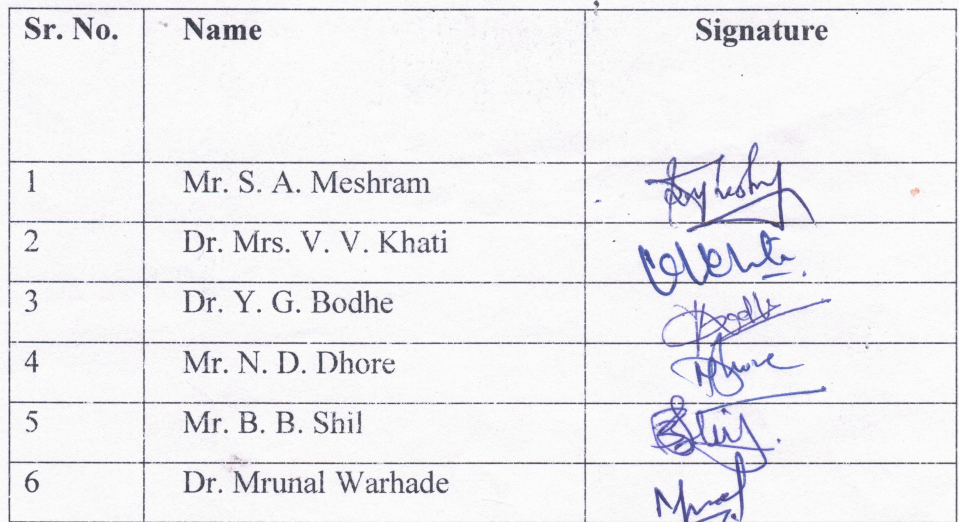 Sr. No. Name Signature
1 Mr. S. A. Meshram
2 Dr. Mrs. V. V. Khati
3 Dr. Y. G. Bodhe Bodhe
4 Mr. N. D. Dhore NDhore
5 Mr. B. B. Shil BShil
6 Dr. Mrunal Warhade